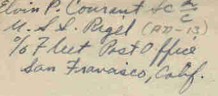 Elvin P. Courant Sc 2/c
U.S.S. Rigel (AD-13)
% Fleet Post Office
San Fravaisco, Calif.